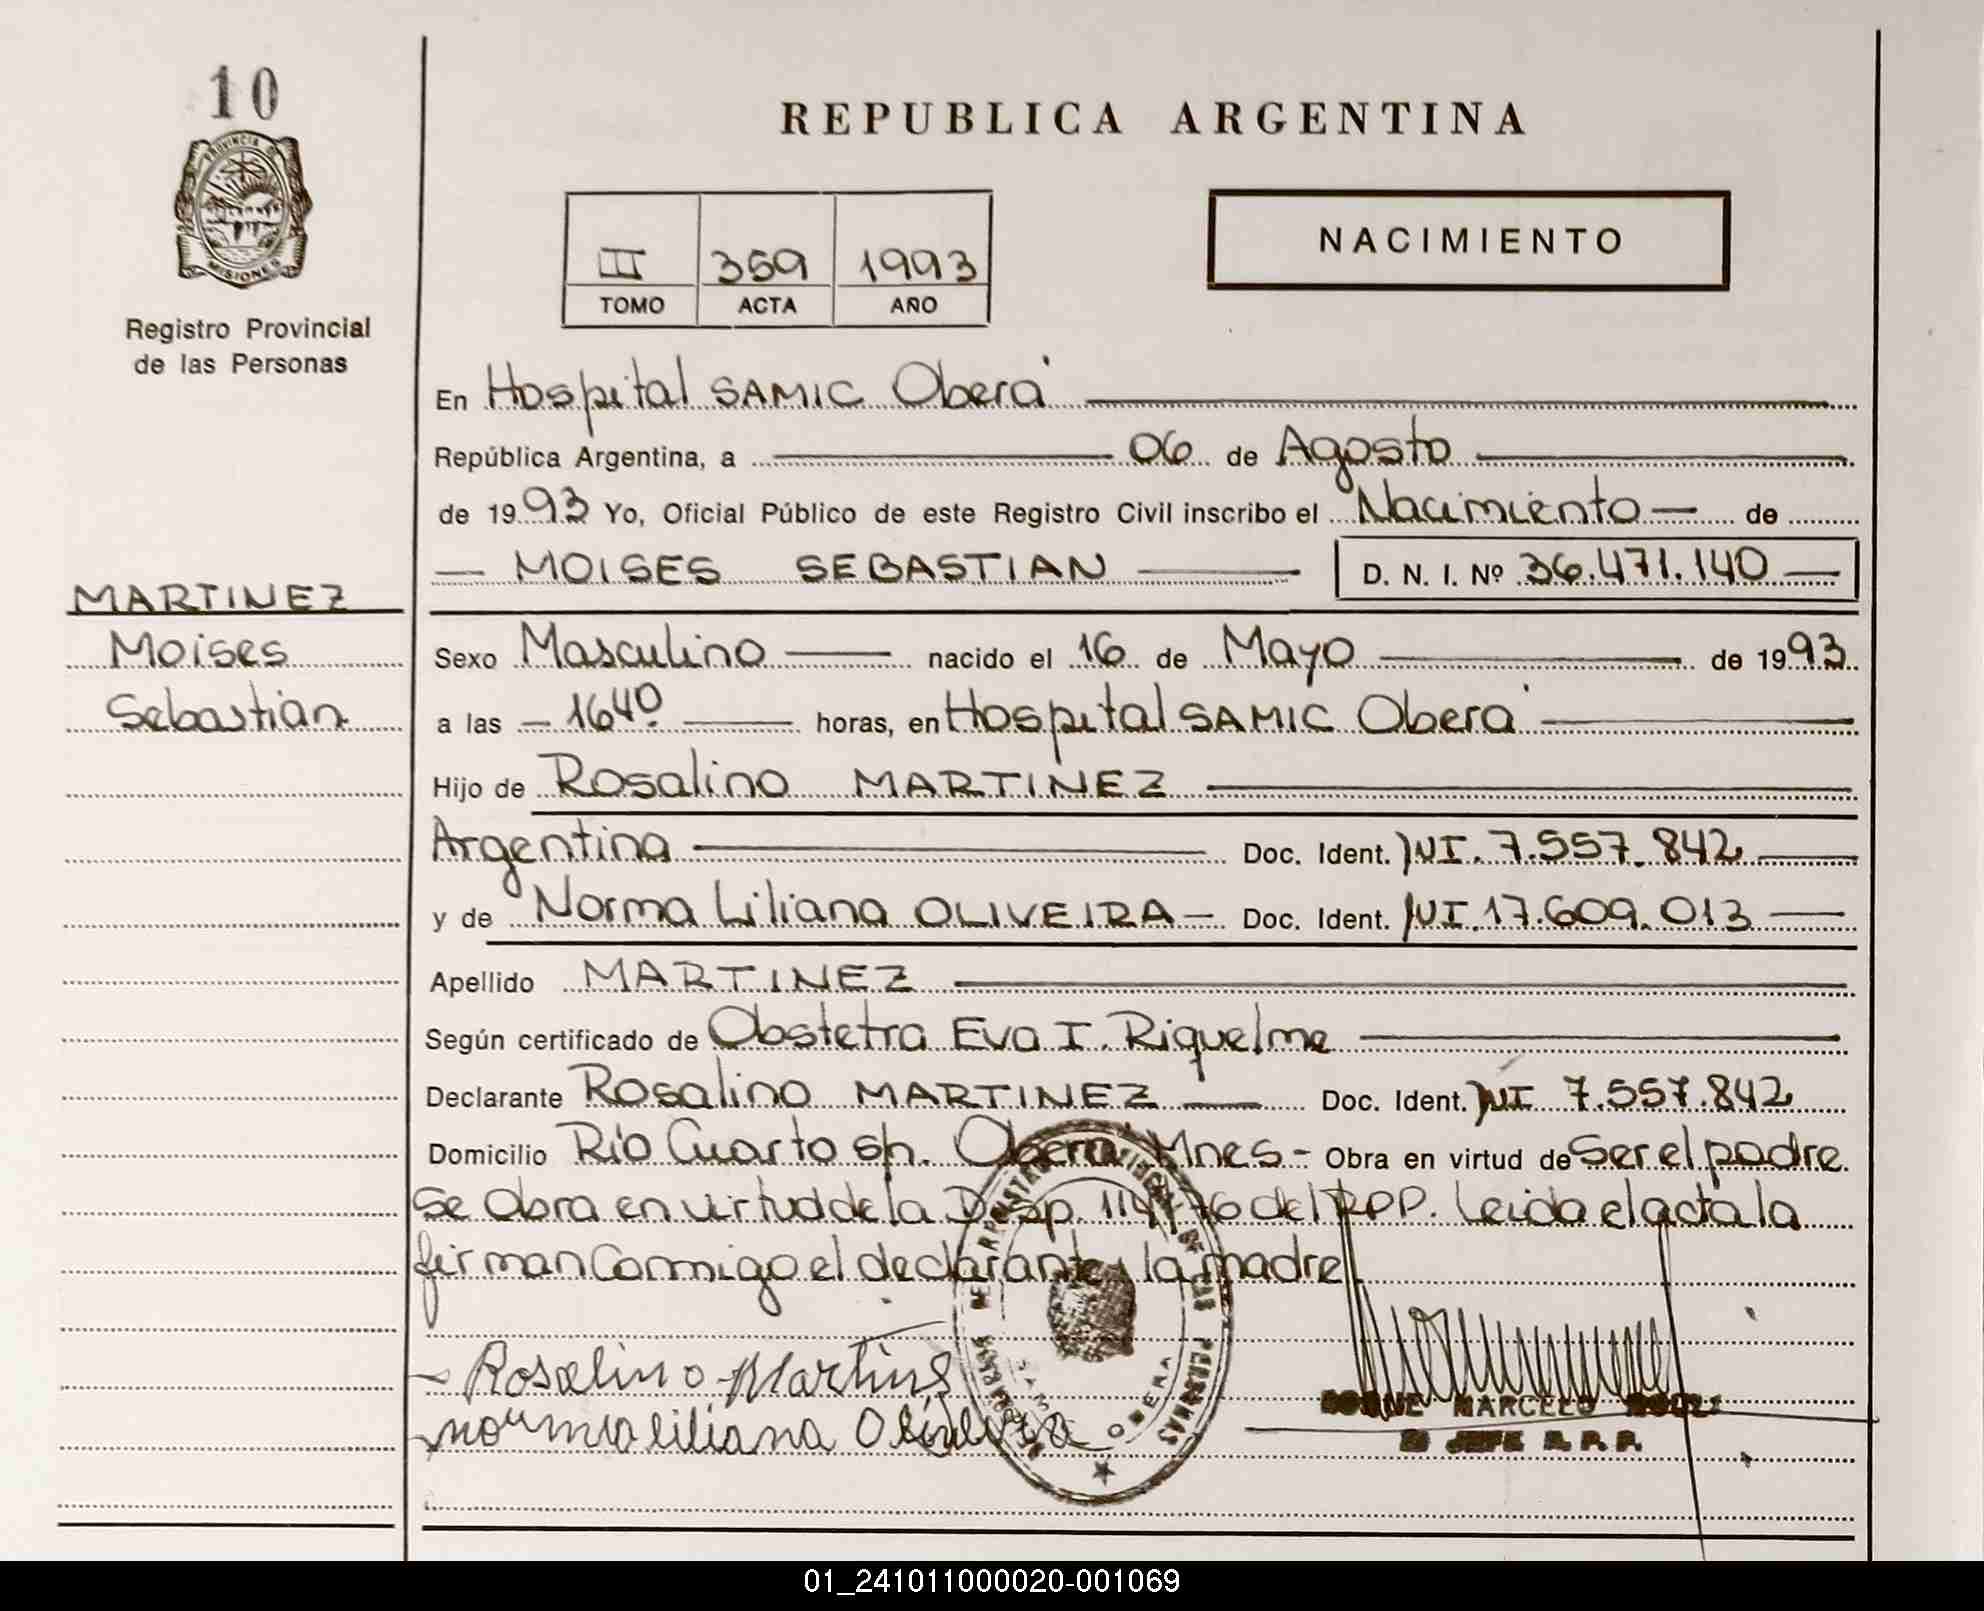 10
PROVINCIA DE
MISIONES
Registro Provincial
de las Personas
MARTINEZ
Moises
Sebastián
REPUBLICA ARGENTINA
III 359 1993
TOMO ACTA AÑO
NACIMIENTO
En Hospital SAMIC Oberá
República Argentina, a 06 de Agosto
de 1993 Yo, Oficial Público de este Registro Civil inscribo el Nacimiento de
MOISES SEBASTIAN D. N. I. Nº 36.471.140
Sexo Masculino nacido el 16 de Mayo de 1993
a las 16 40 horas, en Hospital SAMIC Oberá
Hijo de Rosalino MARTINEZ
Argentina Doc. Ident. 7.557.842
y de Norma Liliana OLIVEIRA Doc. Ident. 17.609.013
Apellido MARTINEZ
Según certificado de Obstetra Eva I. Riquelme
Declarante Rosalino MARTINEZ Doc. Ident. 7.557.842
Domicilio Río Cuarto s/n. Oberá Mnes - Obra en virtud de Ser el padre
Se obra en virtud de la Disp. 114/76 del RPP. Leida el acta la
firman Conmigo el declarante y la madre
Rosalino Martines
norma liliana Oliveira
OBERA
MARCELO
JEFE R. P. P.
01_241011000020-001069